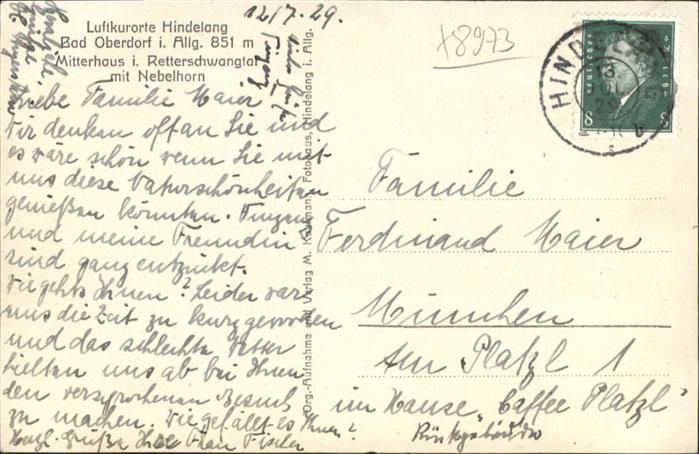 Luftkurorte Hindelang
Bad Oberdorf i. Allg. 851 m
Mitterhaus i. Retterschwangtal
mit Nebelhorn
12/7.29.
Viele Grüße
Liebe Familie Maier!
Wir denken oft an Sie und
es wäre schön wenn Sie mit
uns diese Naturschönheiten
genießen könnten.
und meine Freundin
sind ganz entzückt.
Wie gehts Ihnen? Leider war
uns die Zeit zu kurz geworden
und das schlechte Wetter
hielten uns ab bei Ihnen
den versprochenen Besuch
zu machen. Wie gefällt es Ihnen?
Herzl. Grüße Ihre Frau Fischer
Org.-Aufnahme und Verlag M. Fotohaus, Hindelang i. Allg.
x8973
HINDELANG
13 JUL 29
Deutsches Reich
8 8
Familie
Ferdinand Maier
München
Am Platzl 1
im Hause "Caffee Platzl"
Rückgebäude